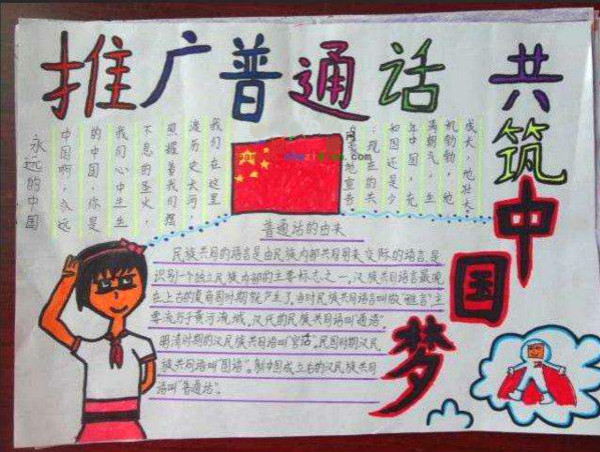 推广普通话
共筑中国梦
永远的中国
中国啊,永远
的中国,你是
我们心中生生
不息的圣火,
照耀着我们
漫历史长河,
我们在这里
地宣告
:现在的共
如国还是少
年中国,充
满朝气,生
机勃勃,他
成长,他壮大。
普通话的由来
民族共同的语言是由民族内部共同用来交际的语言,是
识别一个独立民族内部的主要标志之一。汉族共同语言最晚
在上古的夏商周时期就产生了,当时民族共同语言叫做"雅言"主
要流行于黄河流域。汉代的民族共同语叫"通语"。
明清时期的汉民族共同语叫"官话"。民国时期汉民
族共同语叫"国语"。新中国成立后的汉民族共同
语叫"普通话"。